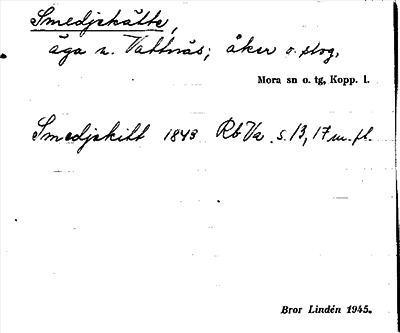 Smedjskälte,
äga n. Vattnäs; åker o. skog,
Mora sn o. tg, Kopp. l.
Smedjskilt 1843 Rb Va s. 13, 17 m. fl.
Bror Lindén 1945.